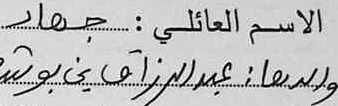 الاسم العائلي : جهاد
والدها : عبد الرزاق بن بوشـ